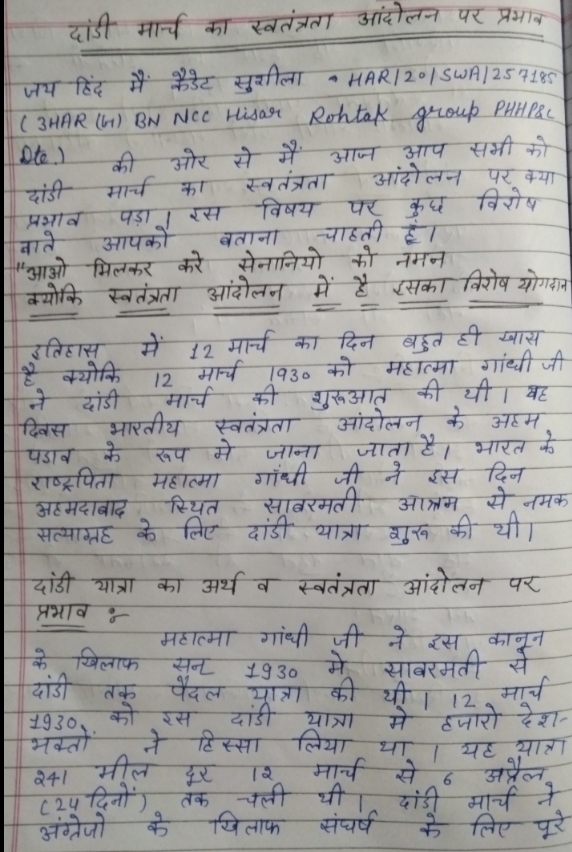 दांडी मार्च का स्वतंत्रता आंदोलन पर प्रभाव
जय हिंद मैं कैडेट सुशीला HAR/20/SWA/257185
(3HAR (W) BN NCC Hisar Rohtak group PHHP&C
Dte.) की ओर से मैं आज आप सभी को
दांडी मार्च का स्वतंत्रता आंदोलन पर क्या
प्रभाव पड़ा। इस विषय पर कुछ विशेष
बाते आपको बताना चाहती हूँ।
"आओ मिलकर करे सेनानियो को नमन
क्योकि स्वतंत्रता आंदोलन में है इसका विशेष योगदान
इतिहास में 12 मार्च का दिन बहुत ही खास
है क्योकि 12 मार्च 1930 को महात्मा गांधी जी
ने दांडी मार्च की शुरूआत की थी। यह
दिवस भारतीय स्वतंत्रता आंदोलन के अहम
पडाव के रूप मे जाना जाता है। भारत के
राष्ट्रपिता महात्मा गांधी जी ने इस दिन
अहमदाबाद स्थित साबरमती आश्रम से नमक
सत्याग्रह के लिए दांडी यात्रा शुरू की थी।
दांडी यात्रा का अर्थ व स्वतंत्रता आंदोलन पर
प्रभाव :-
महात्मा गांधी जी ने इस कानून
के खिलाफ सन् 1930 मे साबरमती से
दांडी तक पैदल यात्रा की थी। 12 मार्च
1930 को इस दांडी यात्रा मे हजारो देश-
भक्तों ने हिस्सा लिया था। यह यात्रा
241 मील दूर 12 मार्च से 6 अप्रैल
(24 दिनों) तक चली थी। दांडी मार्च ने
अंग्रेजो के खिलाफ संघर्ष के लिए पूरे